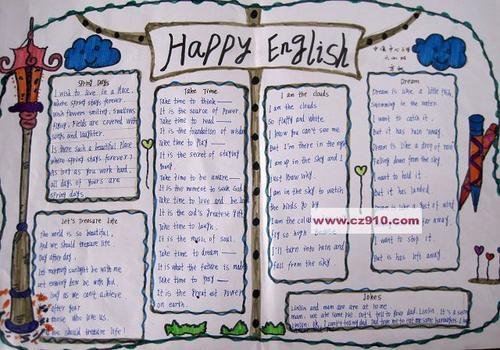 Happy English
Spring Days
I wish to live in a place,
where spring stays forever.
wish flowers smiling, swallows
flying. Fields are covered with
songs and laughter.
Is there such a beautiful place
where spring stays forever?
As long as you work hard,
all days of yours are
spring days.
Let's treasure life
The world is so beautiful.
And we should treasure life
Day after day.
Let morning sunlight be with me
Let evening be with
long as we can't achieve
after year
those who love us.
should treasure life!
Take Time
Take time to think
It is the source of power
Take time to read
It is the foundation of wisdom
Take time to play
It is the secret of staying
young.
Take time to be aware
It is the moment to seek God
Take time to love and be loved
It is the God's greatest gift
Take time to laugh.
It is the music of soul.
Take time to dream
It is what the future is made
Take time to pray
It is the greatest power
on earth.
I am the clouds
I am the clouds
So fluffy and white
I know you can't see me
But I'm there in the night
I am up in the sky and I
just know why.
I am in the sky to watch
the birds go by
I am the clouds
fly so high
I'll turn into rain and
fall from the sky
www.cz910.com
Dream
Dream is like a little fish,
Swimming in the water.
I want to catch it.
But it has run away.
Dream is like a drop of rain
Falling down from the sky
I want to hold it.
But it has landed
of wind
far away.
I want to stop it.
But is has left away.
Jokes
Linlin and mam are at home